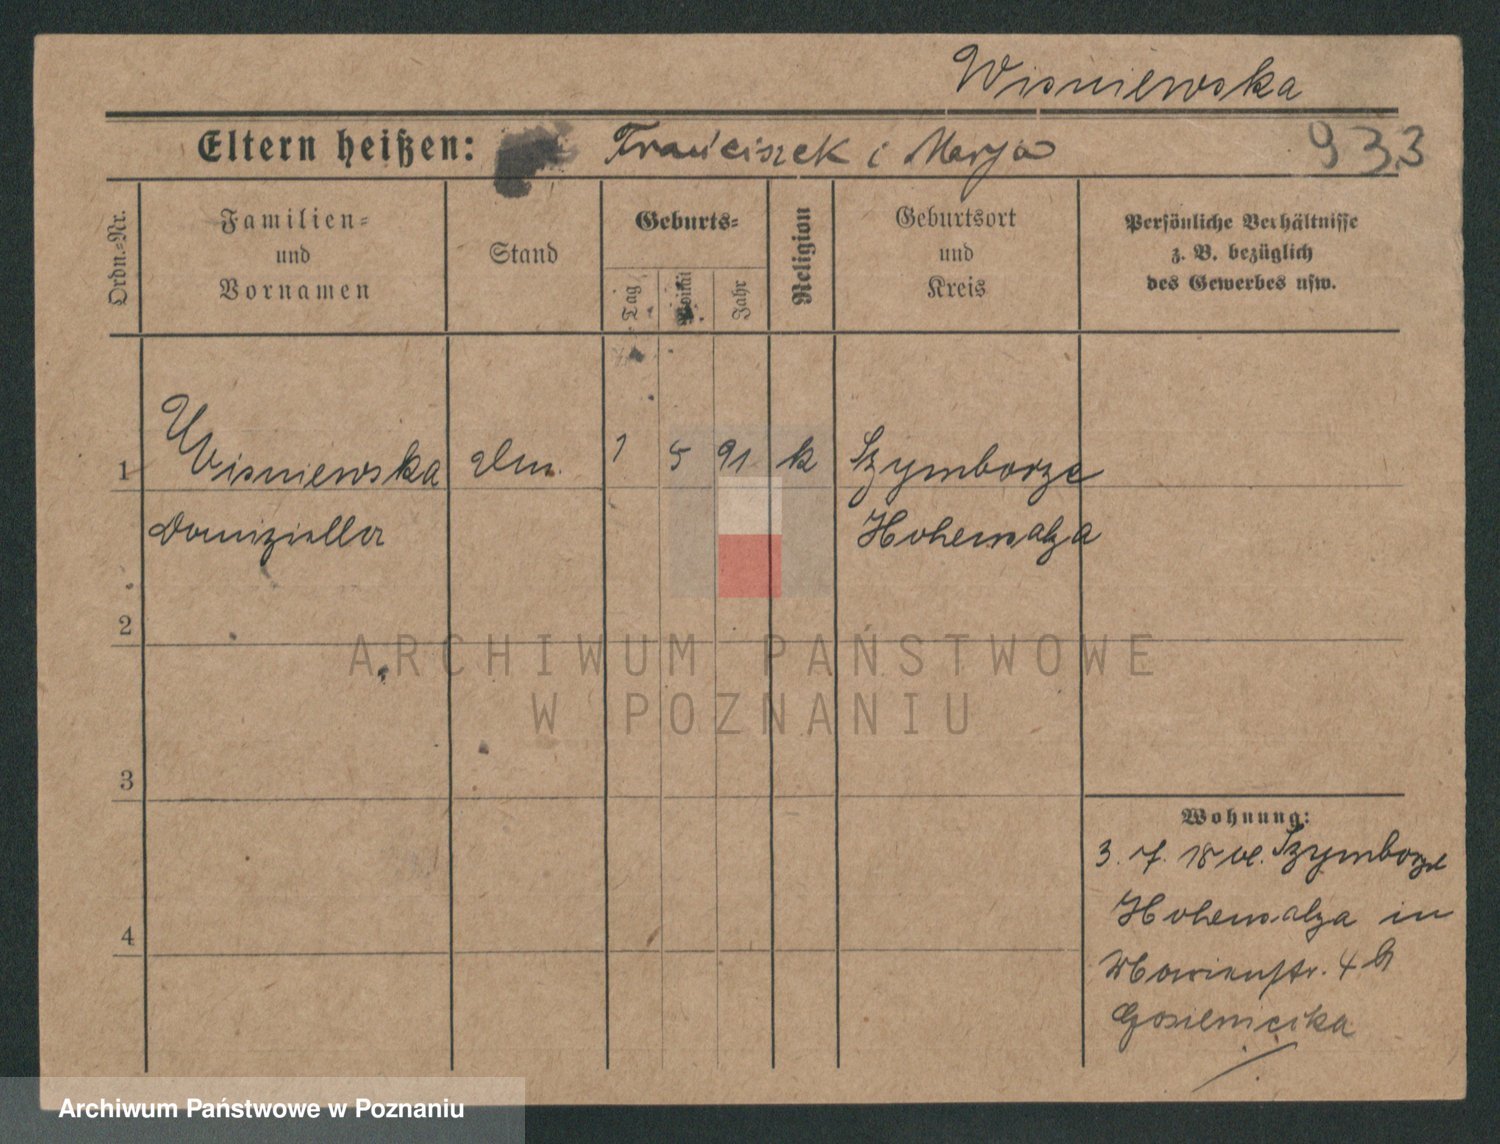 Wisniewska
Eltern heißen: Franciszek i Marja
933
Ordn.-Nr.
Familien-
und
Vornamen
Stand
Geburts-
Tag
Monat
Jahr
Religion
Geburtsort
und
Kreis
Persönliche Verhältnisse
z. B. bezüglich
des Gewerbes usw.
1 Wisniewska 1 5 91 k Szymborze
Hohensalza
2
ARCHIWUM PAŃSTWOWE
W POZNANIU
3
4
Wohnung:
3. 7. 18 Szymborze
Hohensalza in
4 b
Archiwum Państwowe w Poznaniu